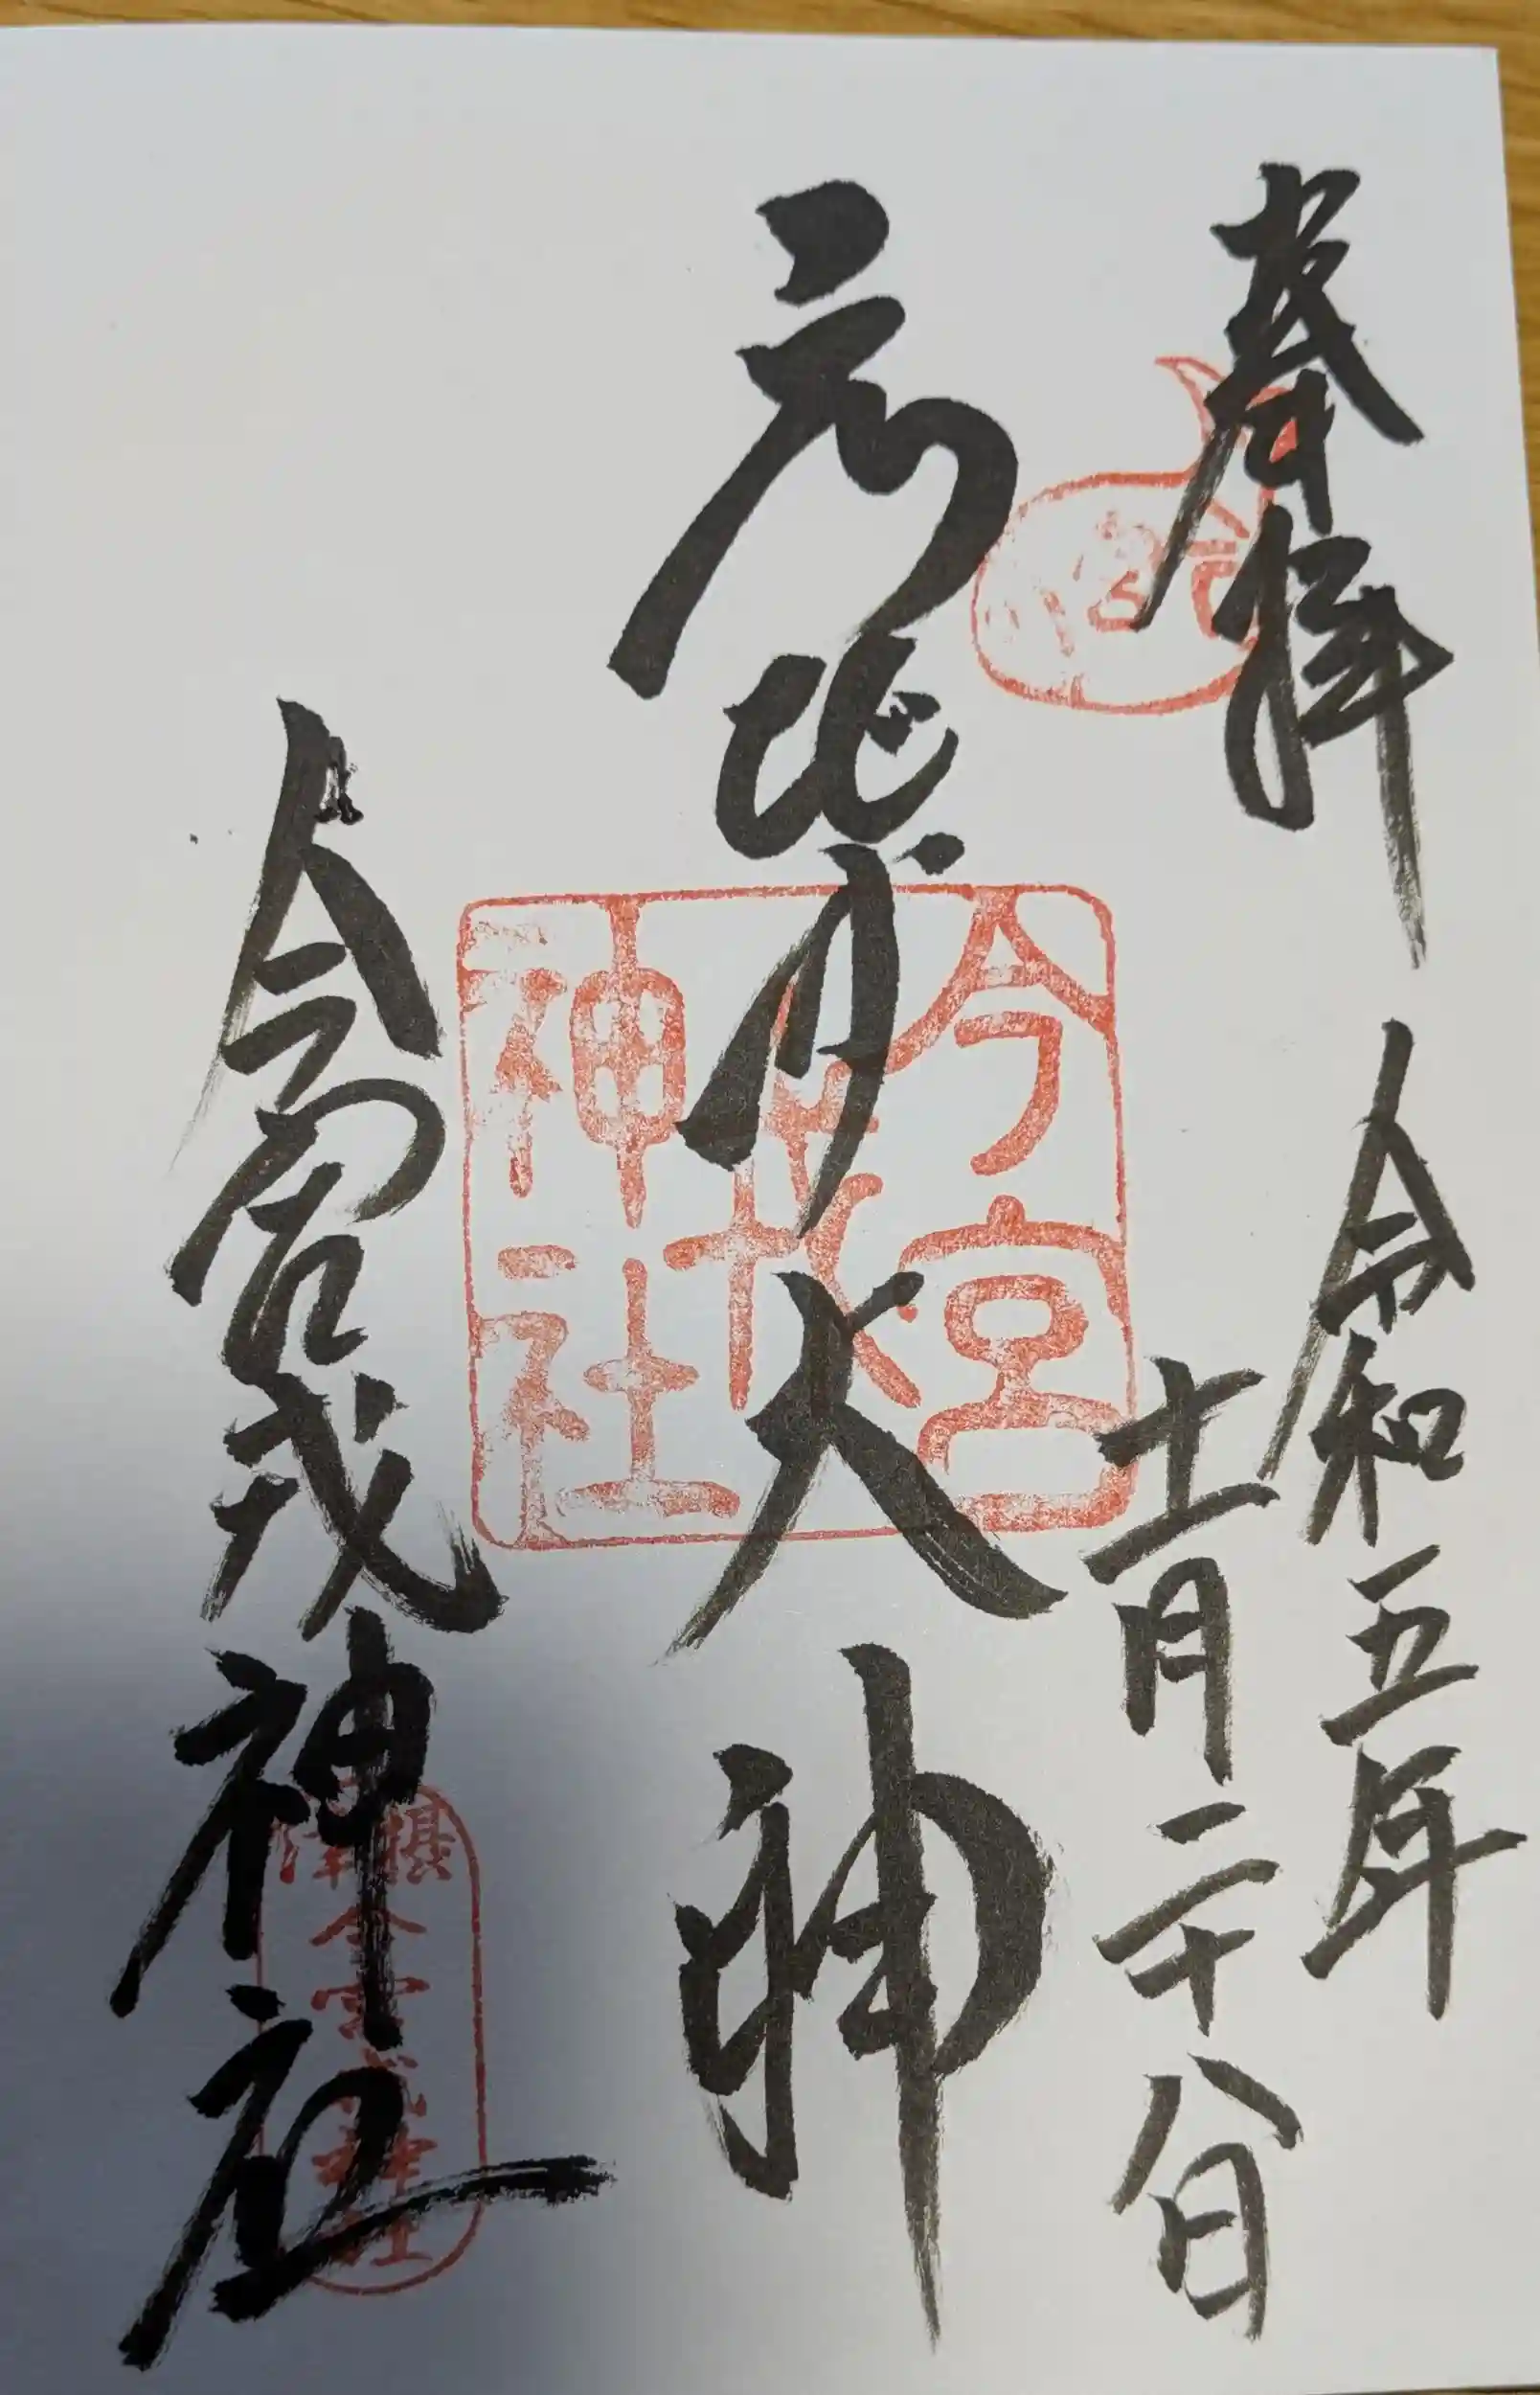 奉拝
令和五年
十一月二十八日
ゑびす大神
今宮
戎
神社
今宮戎神社
摂津
今宮戎神社